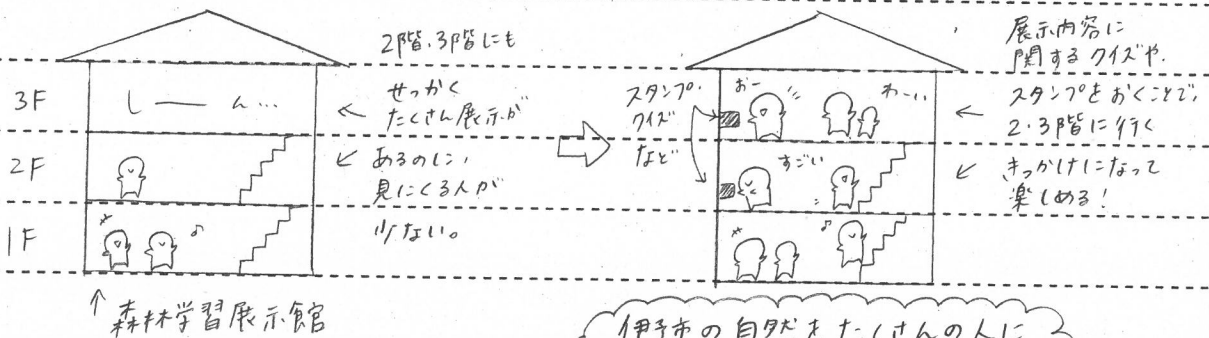 3F
2F
1F
しーーん…
2階、3階にも
せっかく
たくさん展示が
あるのに、
見にくる人が
少ない。
↑森林学習展示館
スタンプ・
クイズ
など
おー
わーい
すごい
展示内容に
関するクイズや、
スタンプをおくことで、
2・3階に行く
きっかけになって
楽しめる!
伊予市の自然をたくさんの人に